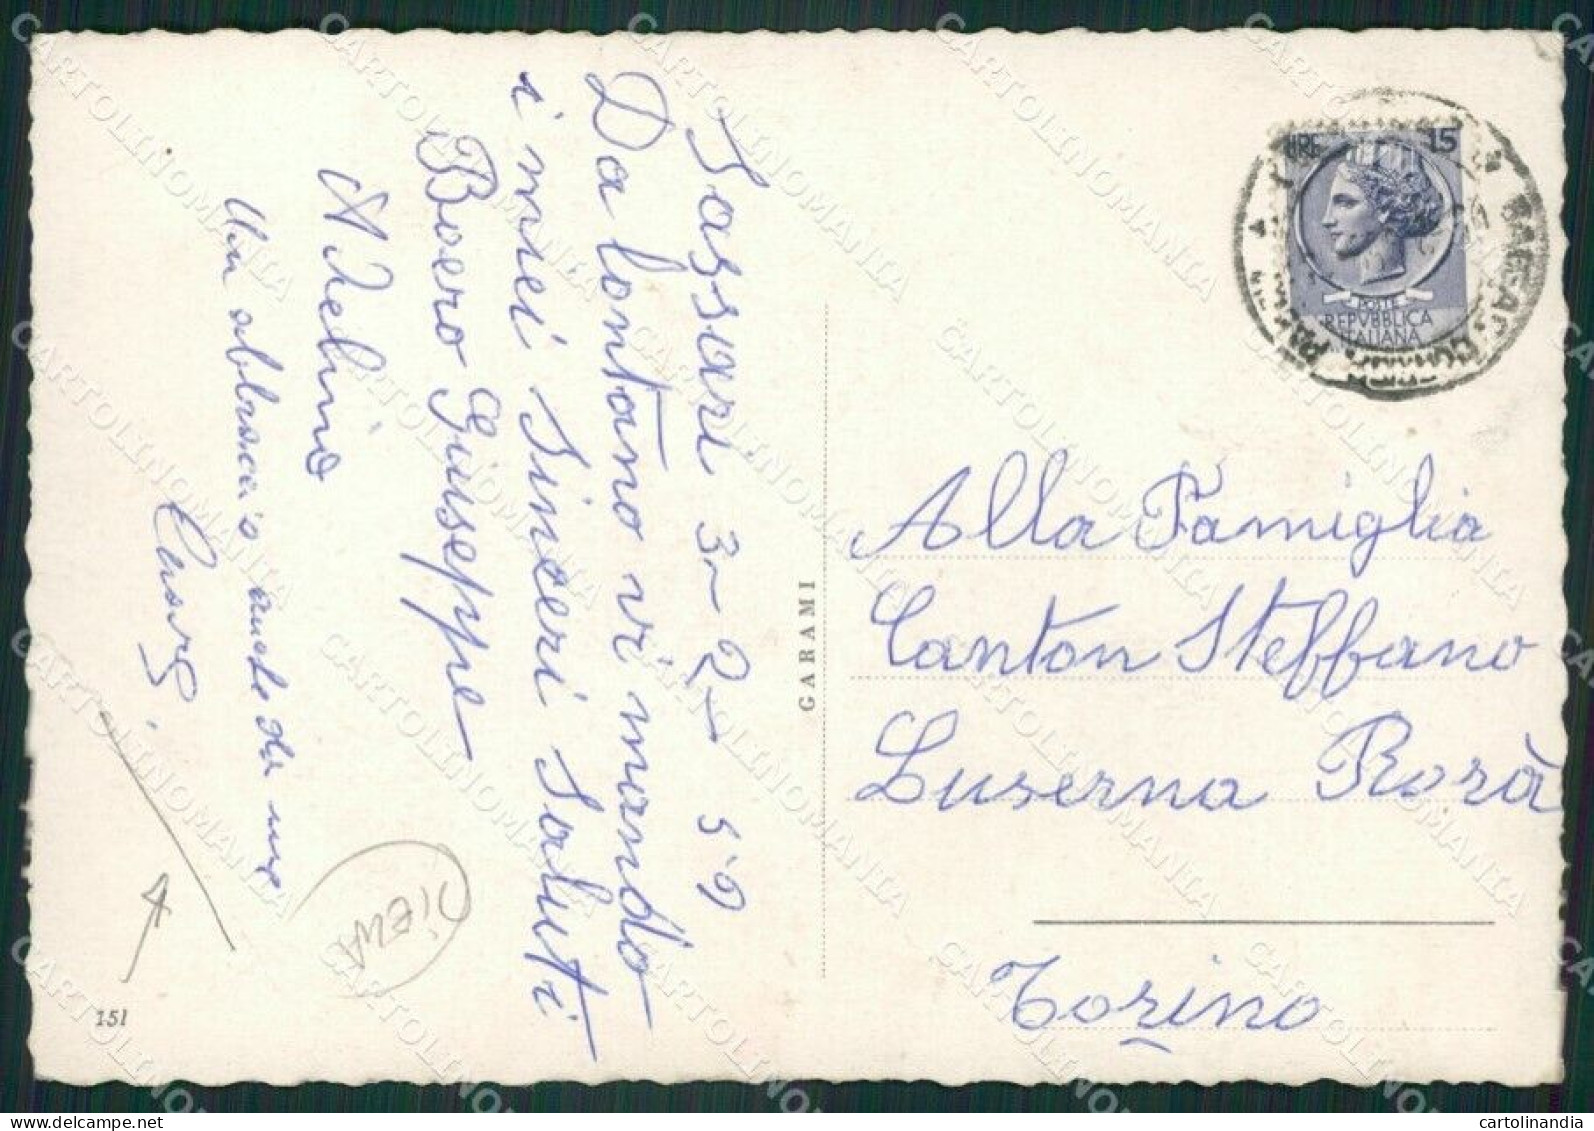 Sassari 3-2- 59
Da lontano vi mando
i miei sinceri saluti
Boero Giuseppe
Adelino
Un abbraccio anche da me
GARAMI
LIRE 15
POSTE
REPVBBLICA
ITALIANA
Alla Famiglia
Canton Steffano
Luserna Rorà
Torino
151
CARTOLINOMANIA
cartolinandia